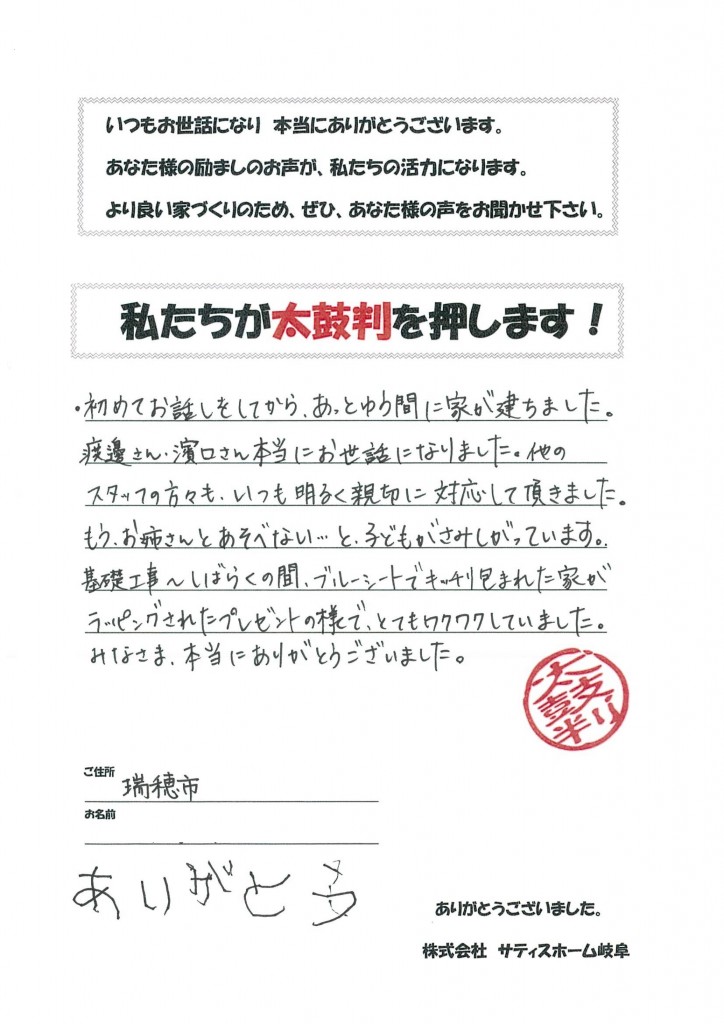 いつもお世話になり 本当にありがとうございます。
あなた様の励ましのお声が、私たちの活力になります。
より良い家づくりのため、ぜひ、あなた様の声をお聞かせ下さい。
私たちが太鼓判を押します！
・初めてお話しをしてから、あっとゆう間に家が建ちました。
渡邊さん・濱口さん本当にお世話になりました。他の
スタッフの方々も、いつも明るく親切に対応して頂きました。
もう、お姉さんとあそべない…と、子どもがさみしがっています。
基礎工事～しばらくの間、ブルーシートでキッチリ包まれた家が
ラッピングされたプレゼントの様で、とてもワクワクしていました。
みなさま、本当にありがとうございました。
太鼓判
ご住所 瑞穂市
お名前
ありがとう
ありがとうございました。
株式会社 サティスホーム岐阜